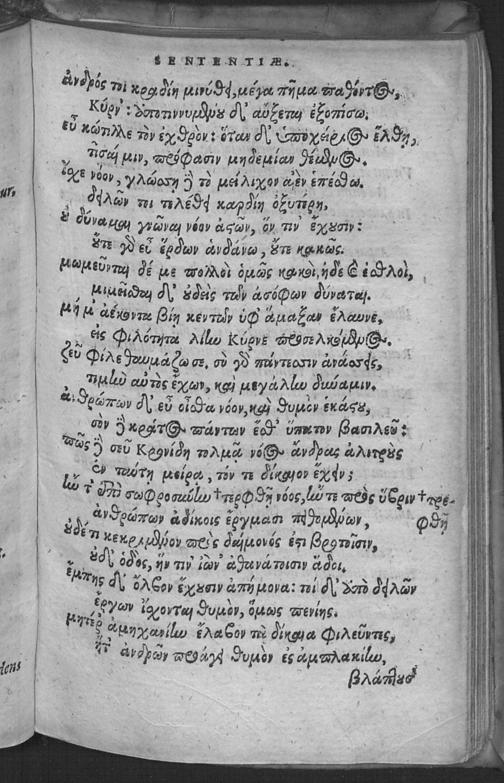 SENTENTIÆ.
ἀνδρός τοι κραδίη μινύθῃ, μέγα πῆμα παθόντος,
Κύρν': ἀποτιννυμένου δ' αὔξεται ἐξοπίσω.
εὖ κώτιλλε τὸν ἐχθρὸν: ὅταν δ' ὑποχείριος ἔλθῃ,
τῖσαί μιν, πρόφασιν μηδεμίαν θέμενος.
ἴσχε νόον, γλώσῃ δὲ τὸ μείλιχον αἰὲν ἐπέσθω.
δειλῶν τοι τελέθει καρδίη ὀξυτέρη,
οὐ δύναμαι γνῶναι νόον ἀστῶν, ὅν τιν' ἔχουσιν:
οὔτε γὰρ εὖ ἔρδων ἁνδάνω, οὔτε κακῶς.
μωμεῦνται δέ με πολλοὶ ὁμῶς κακοὶ, ἠδὲ καὶ ἐσθλοὶ,
μιμεῖσθαι δ' οὐδεὶς τῶν ἀσόφων δύναται.
μή μ' ἀέκοντα βίῃ κεντῶν ὑφ' ἅμαξαν ἔλαυνε,
εἰς φιλότητα λίην Κύρνε προσελκόμενος.
ζεῦ φίλε θαυμάζω σε. σὺ γὰρ πάντεσσιν ἀνάσσεις,
τιμὴν αὐτὸς ἔχων, καὶ μεγάλην δύναμιν.
ἀνθρώπων δ' εὖ οἶσθα νόον, καὶ θυμὸν ἑκάστου,
σὸν δὲ κράτος πάντων ἔσθ' ὕπατον βασιλεῦ:
πῶς δὴ σεῦ Κρονίδη τολμᾶ νόος ἄνδρας ἀλιτροὺς
ἐν ταύτῃ μοίρᾳ, τόν τε δίκαιον ἔχειν;
ἤν τ' ἐπὶ σωφροσύνην †τερφθῇ νόος, ἤν τε πρὸς ὕβριν †τρε-
φθῇ
ἀνθρώπων ἀδίκοις ἔργμασι πειθομένων,
οὐδέ τι κεκριμένον πρὸς δαίμονός ἐστι βροτοῖσιν,
οὐδ' ὁδὸς, ἥν τιν' ἰὼν ἀθανάτοισιν ἅδοι.
ἔμπης δ' ὄλβον ἔχουσιν ἀπήμονα: τοὶ δ' ἀπὸ δειλῶν
ἔργων ἴσχονται θυμὸν, ὅμως πενίης.
μητέρ' ἀμηχανίην ἔλαβον τὰ δίκαια φιλεῦντες,
ἥτ' ἀνδρῶν προάγει θυμὸν ἐς ἀμπλακίην,
βλάπτουσ'